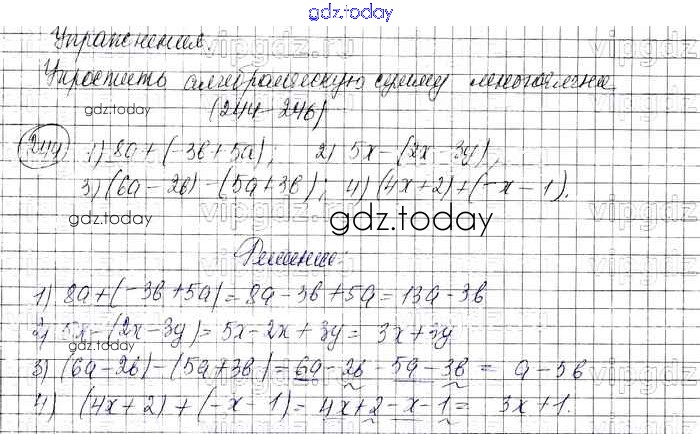 gdz.today
Упражнения.
Упростить алгебраическую сумму многочлена
gdz.today
(244-246)
244) 1) 8a+(-3b+5a); 2) 5x-(2x-3y);
3) (6a-2b)-(5a+3b); 4) (4x+2)+(-x-1).
gdz.today
Решение:
1) 8a+(-3b+5a)=8a-3b+5a=13a-3b
2) 5x-(2x-3y)=5x-2x+3y= 3x+3y
3) (6a-2b)-(5a+3b)=6a-2b-5a-3b= a-5b
4) (4x+2)+(-x-1)=4x+2-x-1= 3x+1.
gdz.today